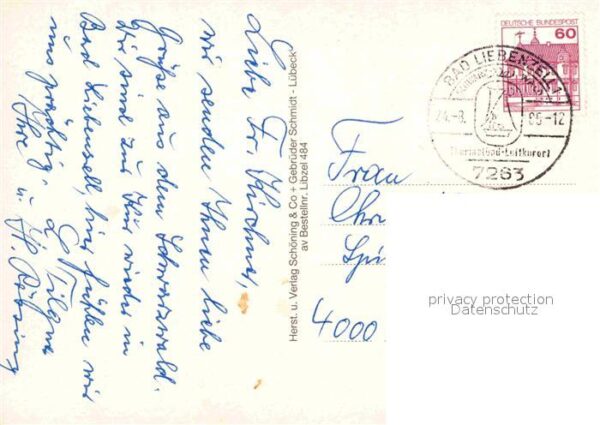 Liebe Fr. Kirchner,
wir senden Ihnen liebe
Grüße aus dem Schwarzwald.
Wir sind zur Kur wieder in
Bad Liebenzell, hier fühlen wir
uns prächtig.
Ihre
u. H.
Herst. u. Verlag Schöning & Co + Gebrüder Schmidt - Lübeck
av Bestellnr. Libzel 484
DEUTSCHE BUNDESPOST
60
BAD LIEBENZELL 1
24.-8. 86-12
Thermalbad-Luftkurort
7263
Frau
Chr
4000
privacy protection
Datenschutz